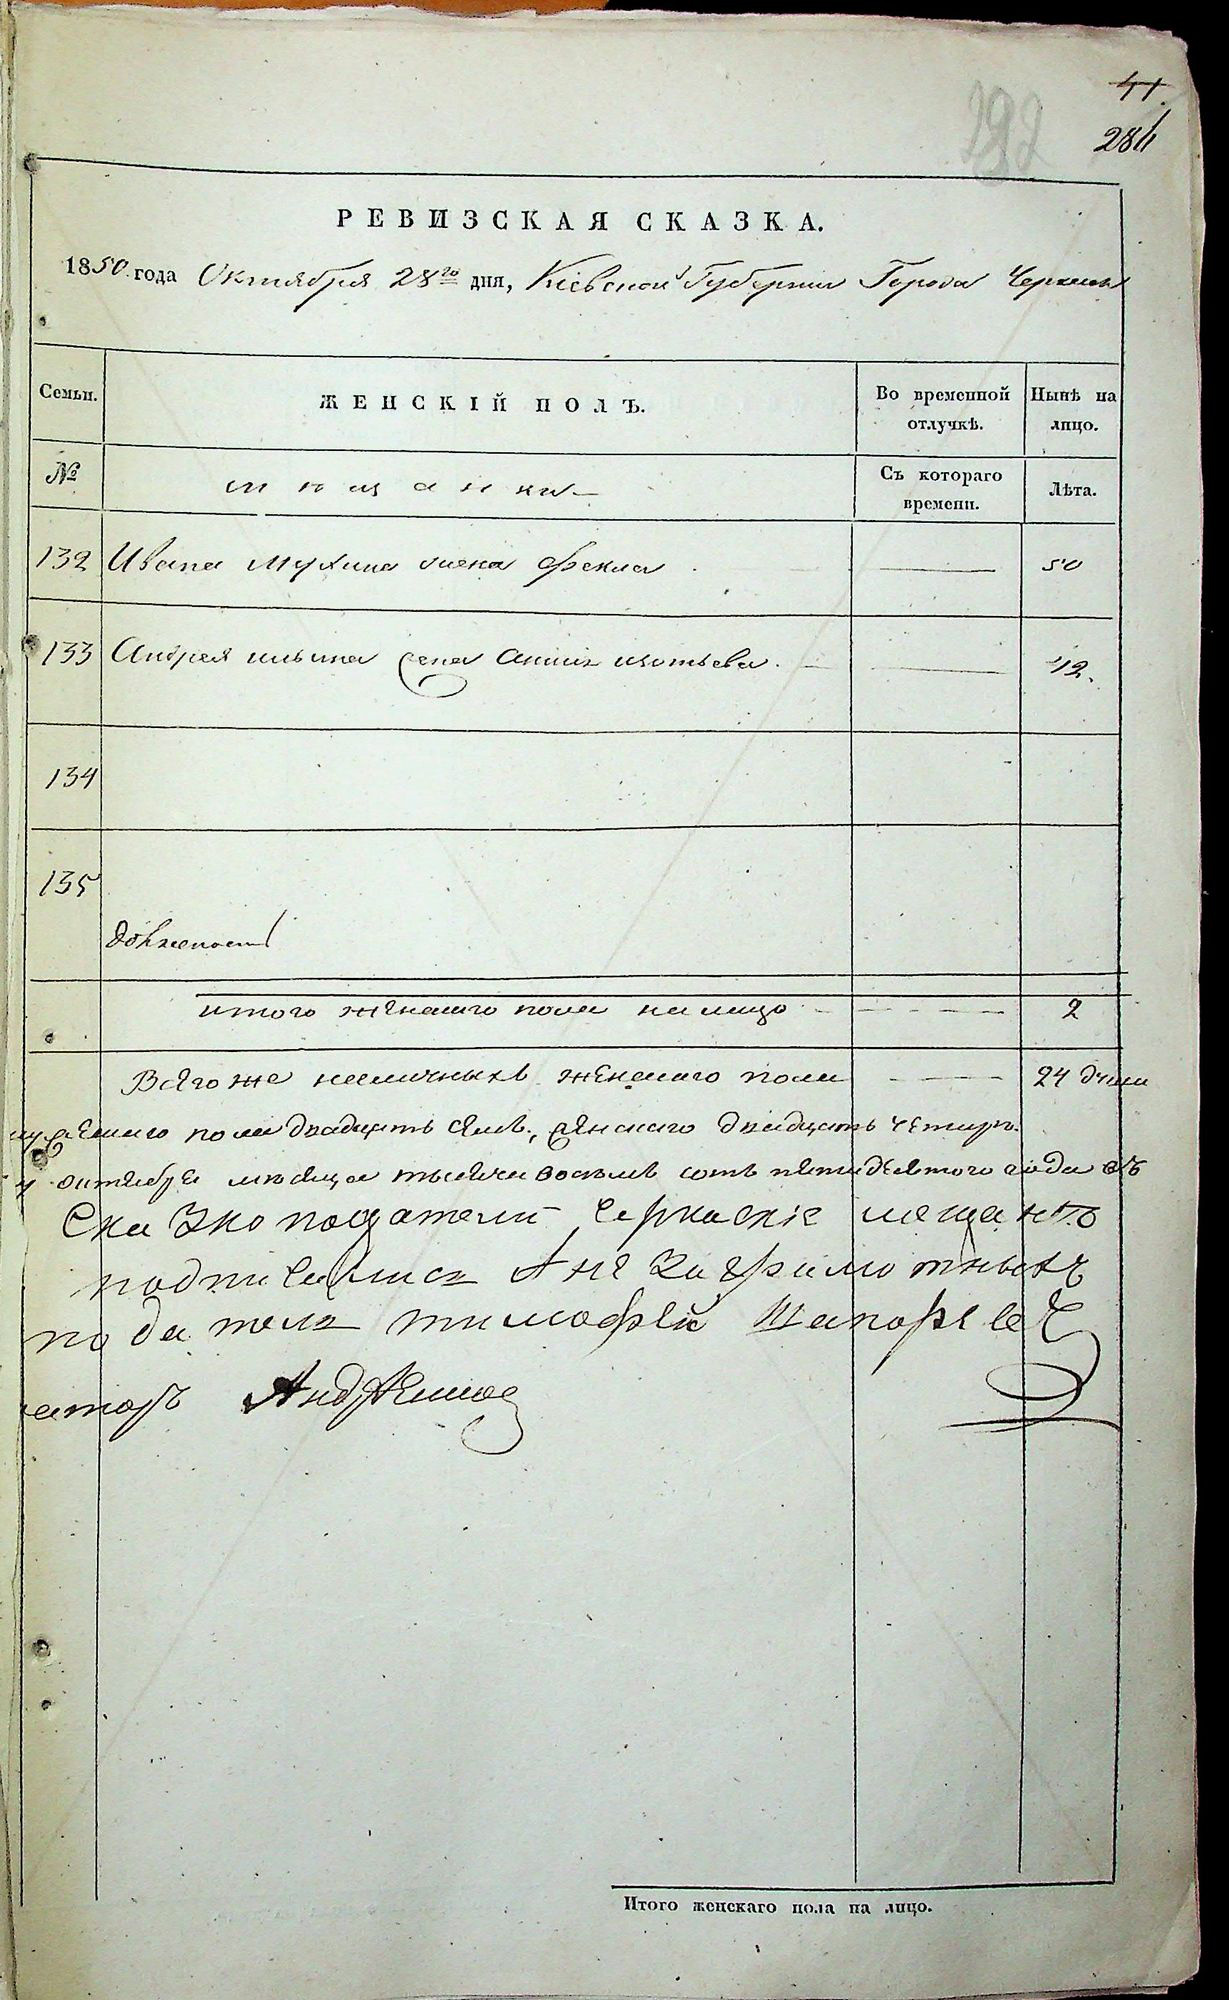 41.
284
292
РЕВИЗСКАЯ СКАЗКА.
1850 года Октября 28го дня, Кіевской Губерніи Города Черкасъ
Семьи. ЖЕНСКІЙ ПОЛЪ. Во временной отлучкѣ. Нынѣ на лицо.
№ мѣщанки Съ котораго времени. Лѣта.
132 Ивана жена Фекла 50
133 Андрея Ильина жена Анна 42.
134
135
итого женскаго пола на лицо 2
Всего же наличныхъ женскаго пола 24 души
пола двадцать женскаго двадцать четыре.
октября мѣсяца тысяча восемь сотъ пятидесятого года Къ
Сказко податели Черкаскіе мещане
подписались А не за грамотныхъ
податель тимофей
Итого женскаго пола на лицо.